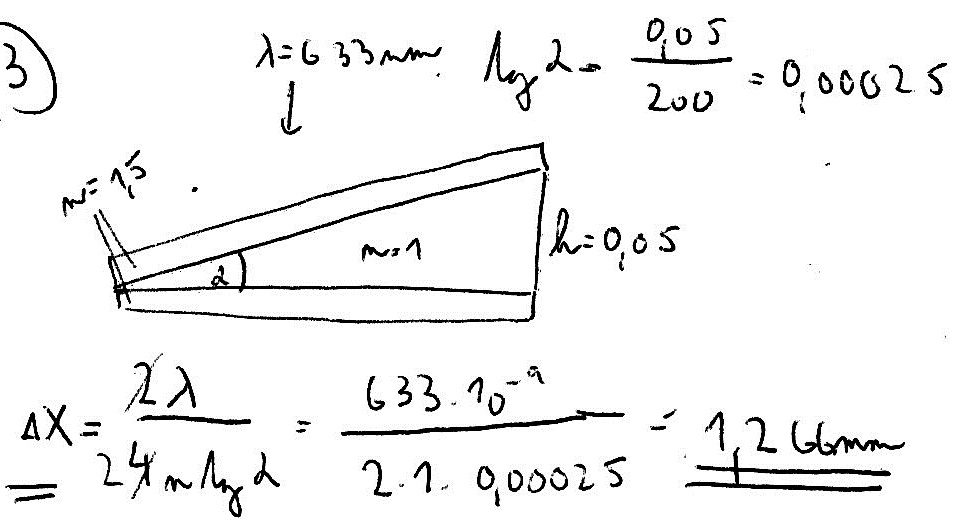 3)
λ=633nm tg α = 0,05 / 200 = 0,00025
n=1,5
n=1
h=0,05
α
ΔX = 2λ / 2 4 n tg α = 633·10⁻⁹ / 2·1·0,00025 = 1,266mm